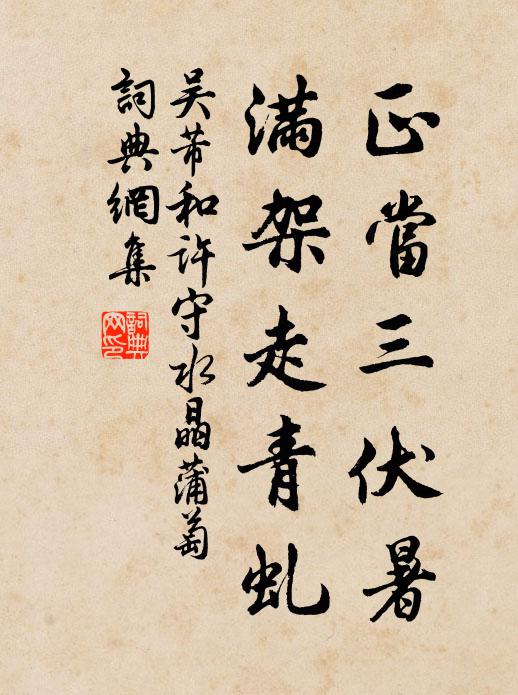 正當三伏暑
滿架走青虬
吴芾和许守水晶蒲萄
詞典網集
詞典
网印